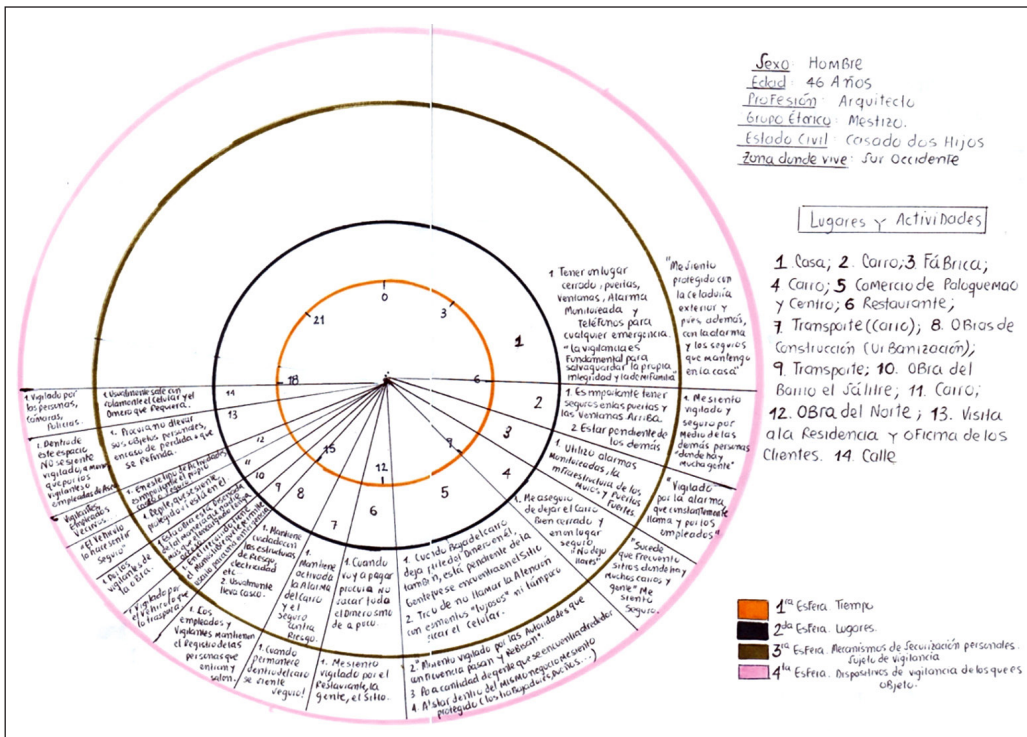 Sexo: Hombre
Edad: 46 Años
Profesión: Arquitecto
Grupo Étarico: Mestizo.
Estado Civil: Casado dos Hijos
Zona donde vive: Sur Occidente
Lugares y Actividades
1. Casa; 2. Carro; 3 Fábrica;
4 Carro; 5 Comercio de Paloquemao
y Centro; 6 Restaurante;
7. Transporte (Carro); 8. Obras de
Construcción (Urbanización);
9. Transporte; 10. Obra del
Barrio el Salitre; 11. Carro;
12. Obra del Norte; 13. Visita
a la Residencia y oficina de los
Clientes. 14 Calle
0
3
6
9
12
15
18
21
1
2
3
4
5
6
7
8
9
10
11
12
13
14
1 Tener un lugar
cerrado, puertas,
Ventanas, Alarma
Monitoreada y
Teléfonos para
cualquier emergencia.
"la vigilancia es
Fundamental para
salvaguardar la propia
integridad y la de mi Familia"
"Me siento
protegido con
la celaduria
exterior y
pues además,
con la alarma
y los seguros
que mantengo
en la casa"
1. Es importante tener
seguros en las puertas y
las Ventanas Arriba.
2 Estar pendiente de
los demás
1. Me siento
vigilado y
seguro por
Medio de las
demás personas
"donde hay
mucha gente"
1. Utilizo alarmas
Monitoreadas, la
infraestructura de los
Muros y Puertas
Fuertes.
"Vigilado"
por la alarma
que constantemente
llama y por los
empleados"
1. Me aseguro
de dejar el Carro
Bien cerrado y
en un lugar
seguro
"No dejo
llaves"
"Sucede
que Frecuento
sitios donde hay
Muchos carros y
gente" Me
siento Seguro.
1 Cuando Baja del carro
deja el Dinero en él,
también, está pendiente de la
Gente que se encuentra en el Sitio
2. Trato de no llamar la Atención
con elementos "lujosos" ni tampoco
sacar el celular.
2° Me siento vigilado por las Autoridades que
con frecuencia pasan y Revisan".
3 Por la cantidad de gente que se encuentra alrededor
4. Al estar dentro del Mismo negocio me siento
protegido (los trabajadores, pues los...)
1. Cuando
voy a pagar
procura no
sacar todo
el Dinero sino
de a poco.
1. Me siento
vigilado por el
Restaurante, la
gente, el Sitio.
1.
Mantiene
activada
la Alarma
del carro
y el
seguro
contra
Riesgo.
1. Cuando
permanece
dentro del carro
se siente
seguro!
1. Mantiene
cuidado con
las estructuras
de Riesgo,
electricidad
etc
2. Usualmente
lleva casco.
1. Los
empleados y
Vigilantes Mantienen
el Registro de las
personas que
entran y
salen.
1. Vigilado por
el Vehículo que
lo traspora.
1. Por los
vigilantes de
la obra.
"El Vehículo
lo hace sentir
Seguro"
Vigilantes
Empleados
Vecinos.
1. Repite, que se siente
protegido si está en él.
1. Procura no llevar
sus objetos personales,
en caso de pérdida o que
se pefunda.
1. Dentro de
este espacio
NO se siente
vigilado, a menos
que por los
vigilantes o
empleadas de Aseo
1. Usualmente sale con
solamente el celular y el
Dinero que Requiera.
1. Vigilado por
las personas,
Camaras,
Policias.
1ra Esfera Tiempo
2da Esfera. Lugares.
3ra Esfera. Mecanismos de Securización personales.
Sujeto de vigilancia
4ta Esfera. Dispositivos de vigilancia de los que es
Objeto.